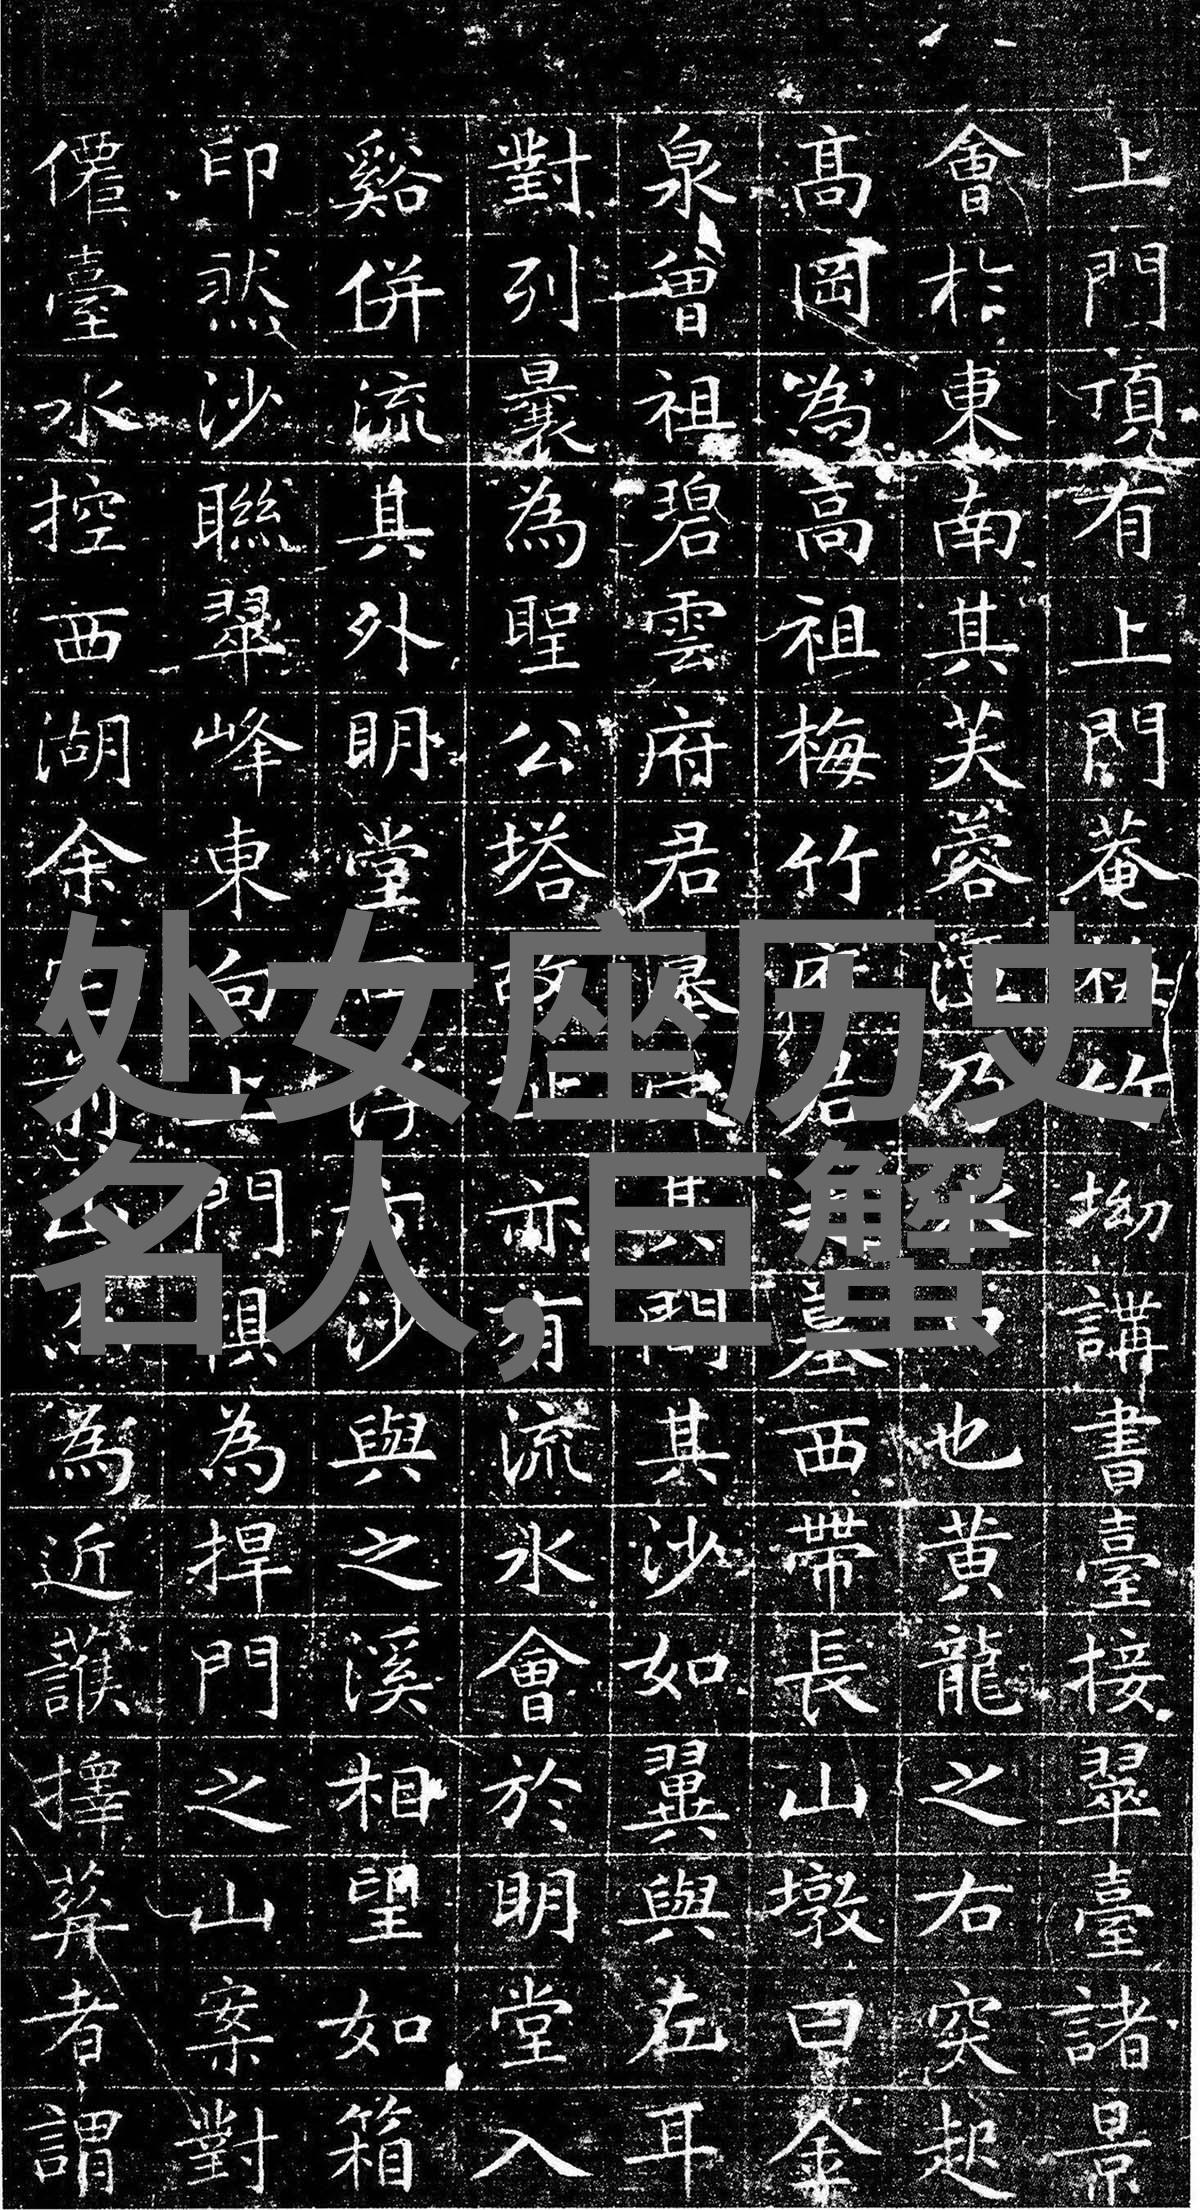 上門頂有上門菴梅竹坳講書臺接翠臺諸景
會於東南其芙蓉潭乃水口也黃龍之右突起
高岡為高祖梅竹府君墓西帶長山墩曰金
泉曾祖碧雲府君其間其沙如翼與左耳
對列曩為聖公塔故址亦有流水會於明堂入
谿併流其外明堂沙與之溪相望如箱
印然沙聯翠峰東向上門俱為捍門之山案對
僊臺水控西湖余前為近擇葬者謂
处女座历史
名人,巨蟹